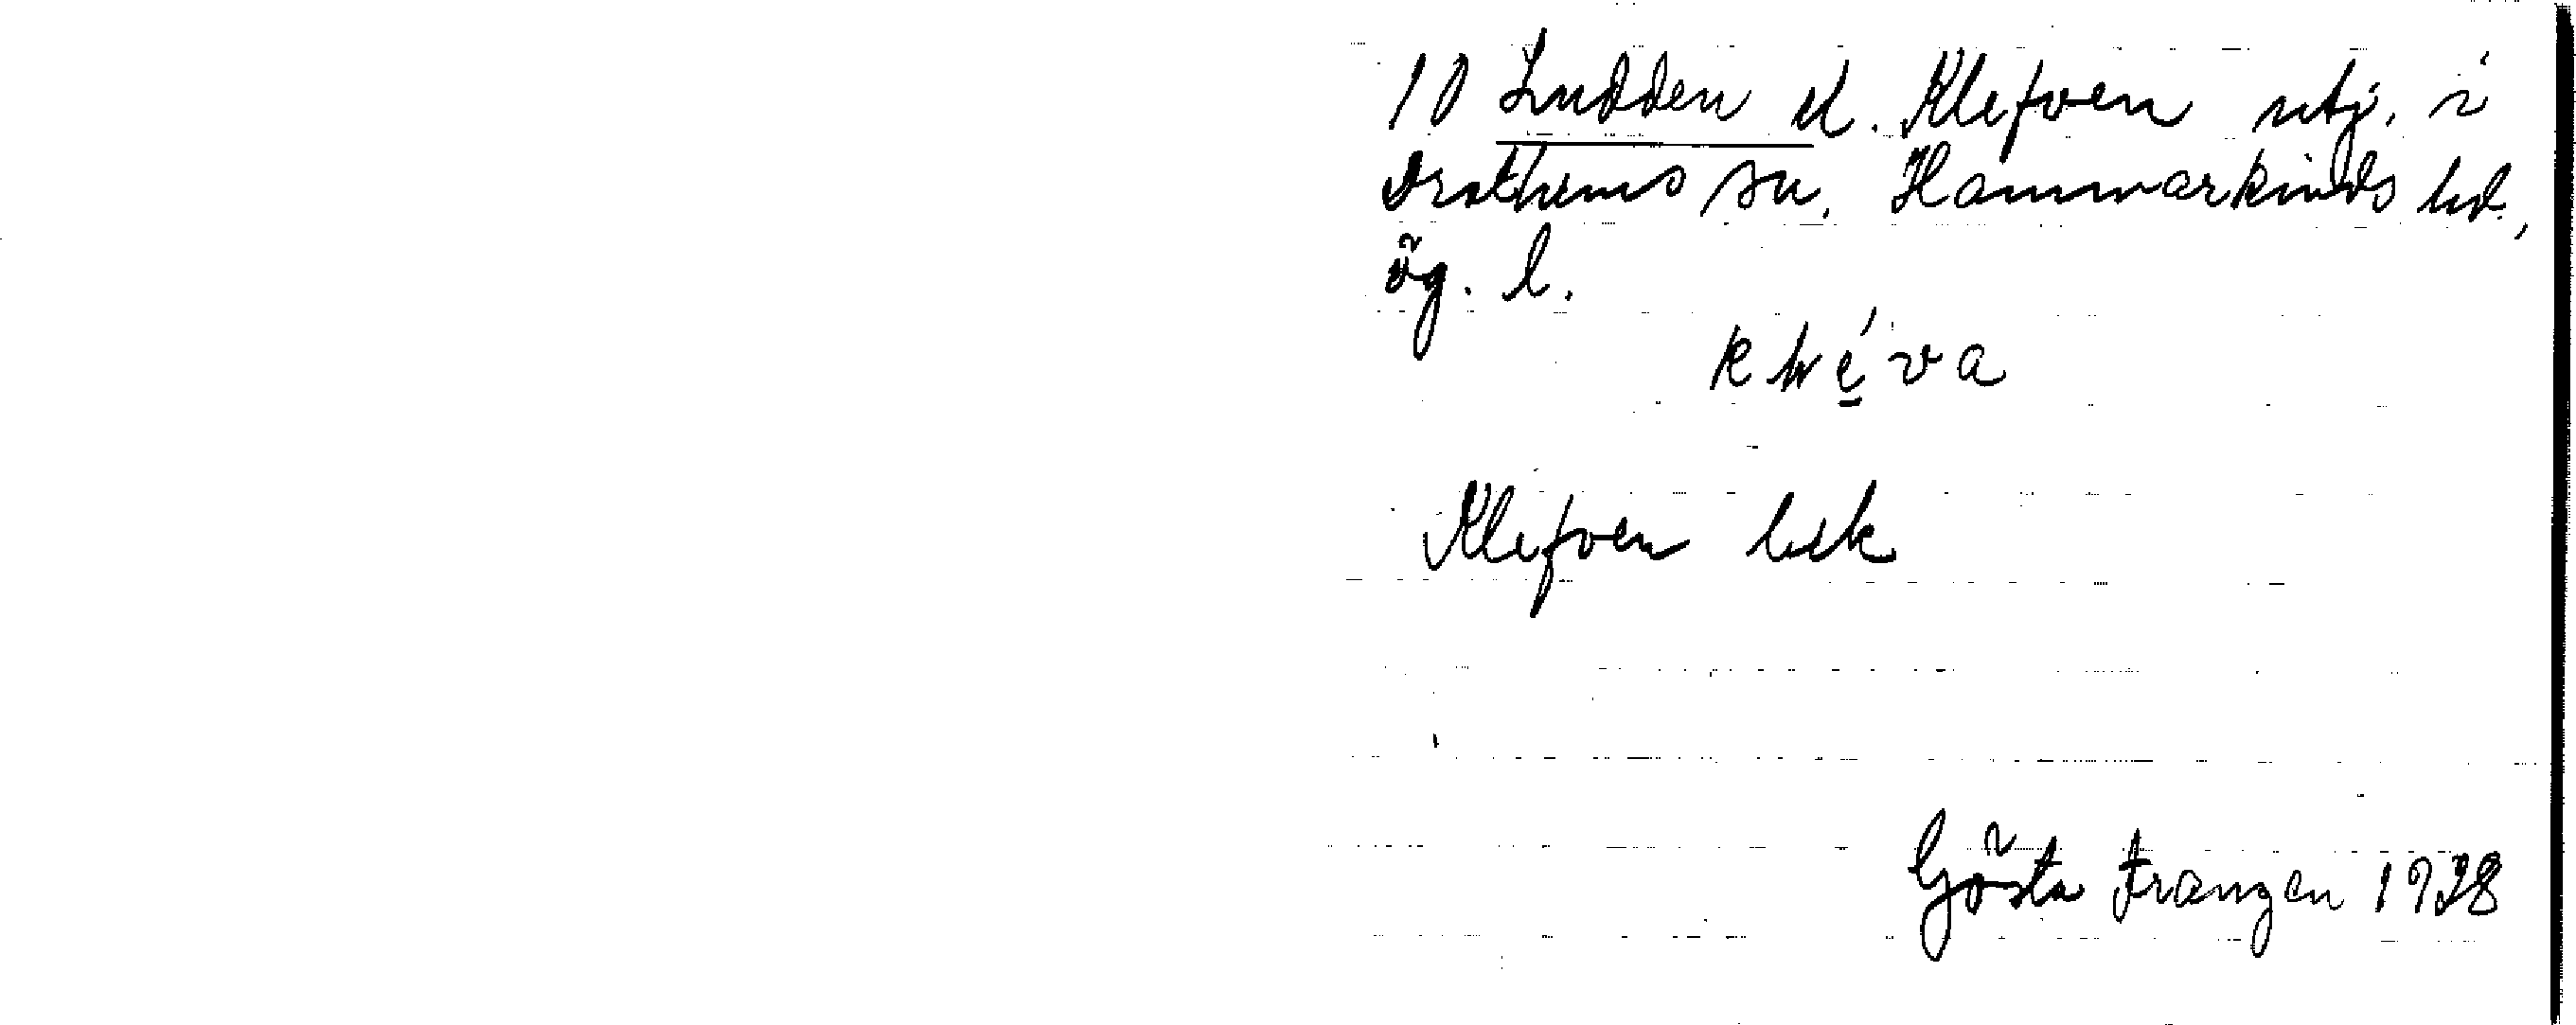 10 Ludden el. Klefven utj. i
Drothems sn. Hammarkinds hd.,
ög. l.
klu̱éva
Klefven lsk
Gösta Franzen 1928